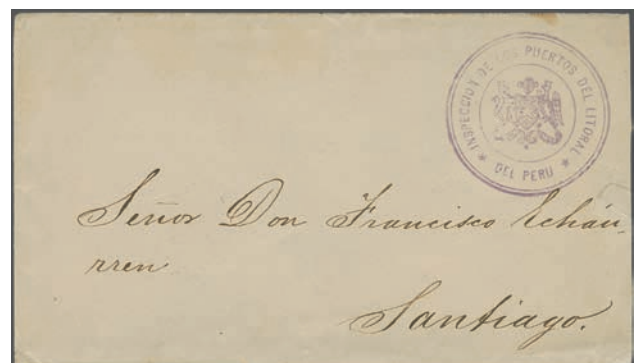 INSPECCION DE LOS PUERTOS DEL LITORAL
* DEL PERU *
Señor Don Francisco Echáu-
rren
Santiago.